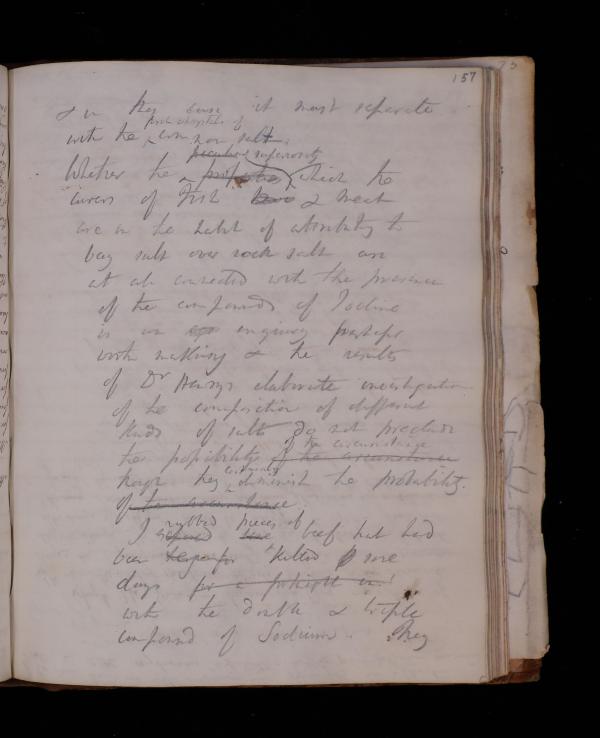 157
& in this case it must separate
with the first crystals of common salt.
Whether the peculiar superiority properties which the
curers of Fish have & meat
are in the habit of attributing to
bay salt over rock salt are
at all connected with the presence
of the compounds of Iodine
is an enquiry perhaps
worth making & the results
of Dr Henrys elaborate investigation
of the composition of different
kinds of salt do not preclude
the possibility of the circumstance of the circumstance
though they certainly diminish the probability.
of the circumstance
I rubbed pieces of beef that had
been killed some
days for a fortnight
with the double & triple
compound of Sodium. They